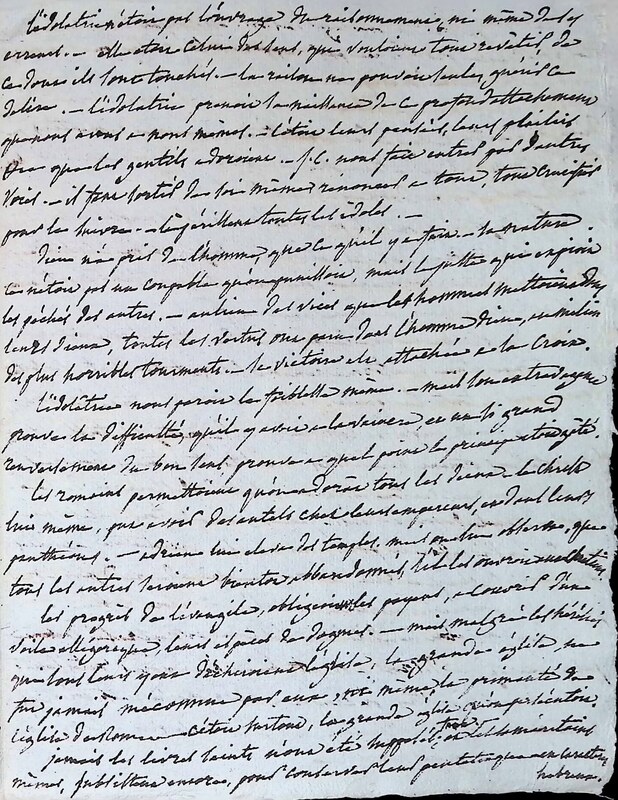 l'idolatrie n'etoit pas l'ouvrage du raisonnement, ni même de ses
erreurs. – elle etoit celui des sens, qui vouloient tout revêtir, de
ce dont ils sont touchés. – la raison ne pouvoit seule, guérir ce
délire. – l'idolatrie prenoit sa naissance de ce profond attachement
que nous avons a nous mêmes. – c'étoit leurs pensées, leurs plaisirs
que les gentils adoroient. – J. C. nous fait entrer par d'autres
voies. – il faut sortir de soi même, renoncer a tout, tout crucifier
pour le suivre. – toutes les idoles. –
Dieu n'a pris de l'homme, que ce qu'il y a fait. – sa nature.
ce n'étoit pas un coupable qu'on punissoit, mais le juste qui expioit
les péchés des autres. – au lieu des vices que les hommes mettoient dans
leurs dieux, toutes les vertus ont paru dans l'homme Dieu, au milieu
des plus horribles tourments. – la victoire est attachée a la Croix.
l'idolâtrie nous paroit la foiblesse même. – mais
prouve la difficulté, qu'il y avoit a la vaincre, et un si grand
renversement du bon sens prouve a quel point le principe etoit gâté.
les romains permettoient qu'on adorât tous les dieux. le christ
lui même, put avoir des autels chez leurs empereurs, et dans leurs
panthéons. – adrien lui eleva des temples, mais on lui observa, que
tous les autres seroient bientot abbandonnés, s'il les ouvroit aux chrétiens.
les progrès de l'évangile, obligeoient les payens, a couvrir d'un
voile allégorique, leurs de dogmes. – mais malgré les hérésies
qui sous leurs yeux déchiroient l'église, la grande église ne
fut jamais méconnue par eux même, la primauté de
l'église de Rome – c'étoit surtout, la grande église qu'on persécutoit.
jamais les livres saints n'ont été supposés. – les samaritains
mêmes, subsistent encore, pour conserver leur pentateuque en caractères
hébreux.